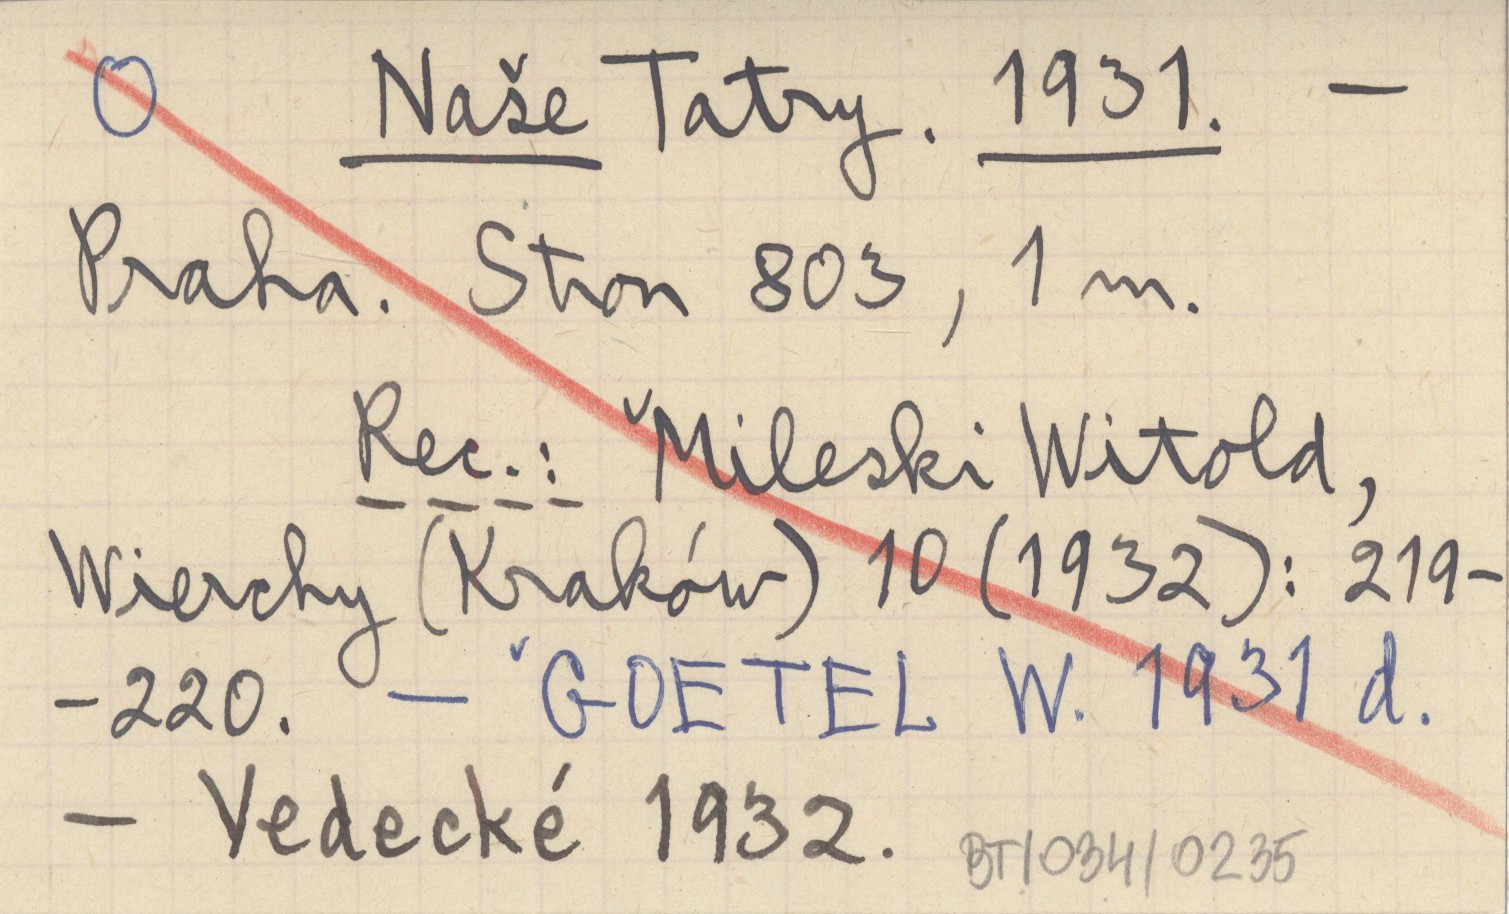 O Naše Tatry. 1931. —
Praha. Stron 803, 1 m.
Rec.: ˇMileski Witold,
Wierchy (Kraków) 10 (1932): 219-
-220. — ˇGOETEL W. 1931 d.
— Vedecké 1932.
BT/034/0235